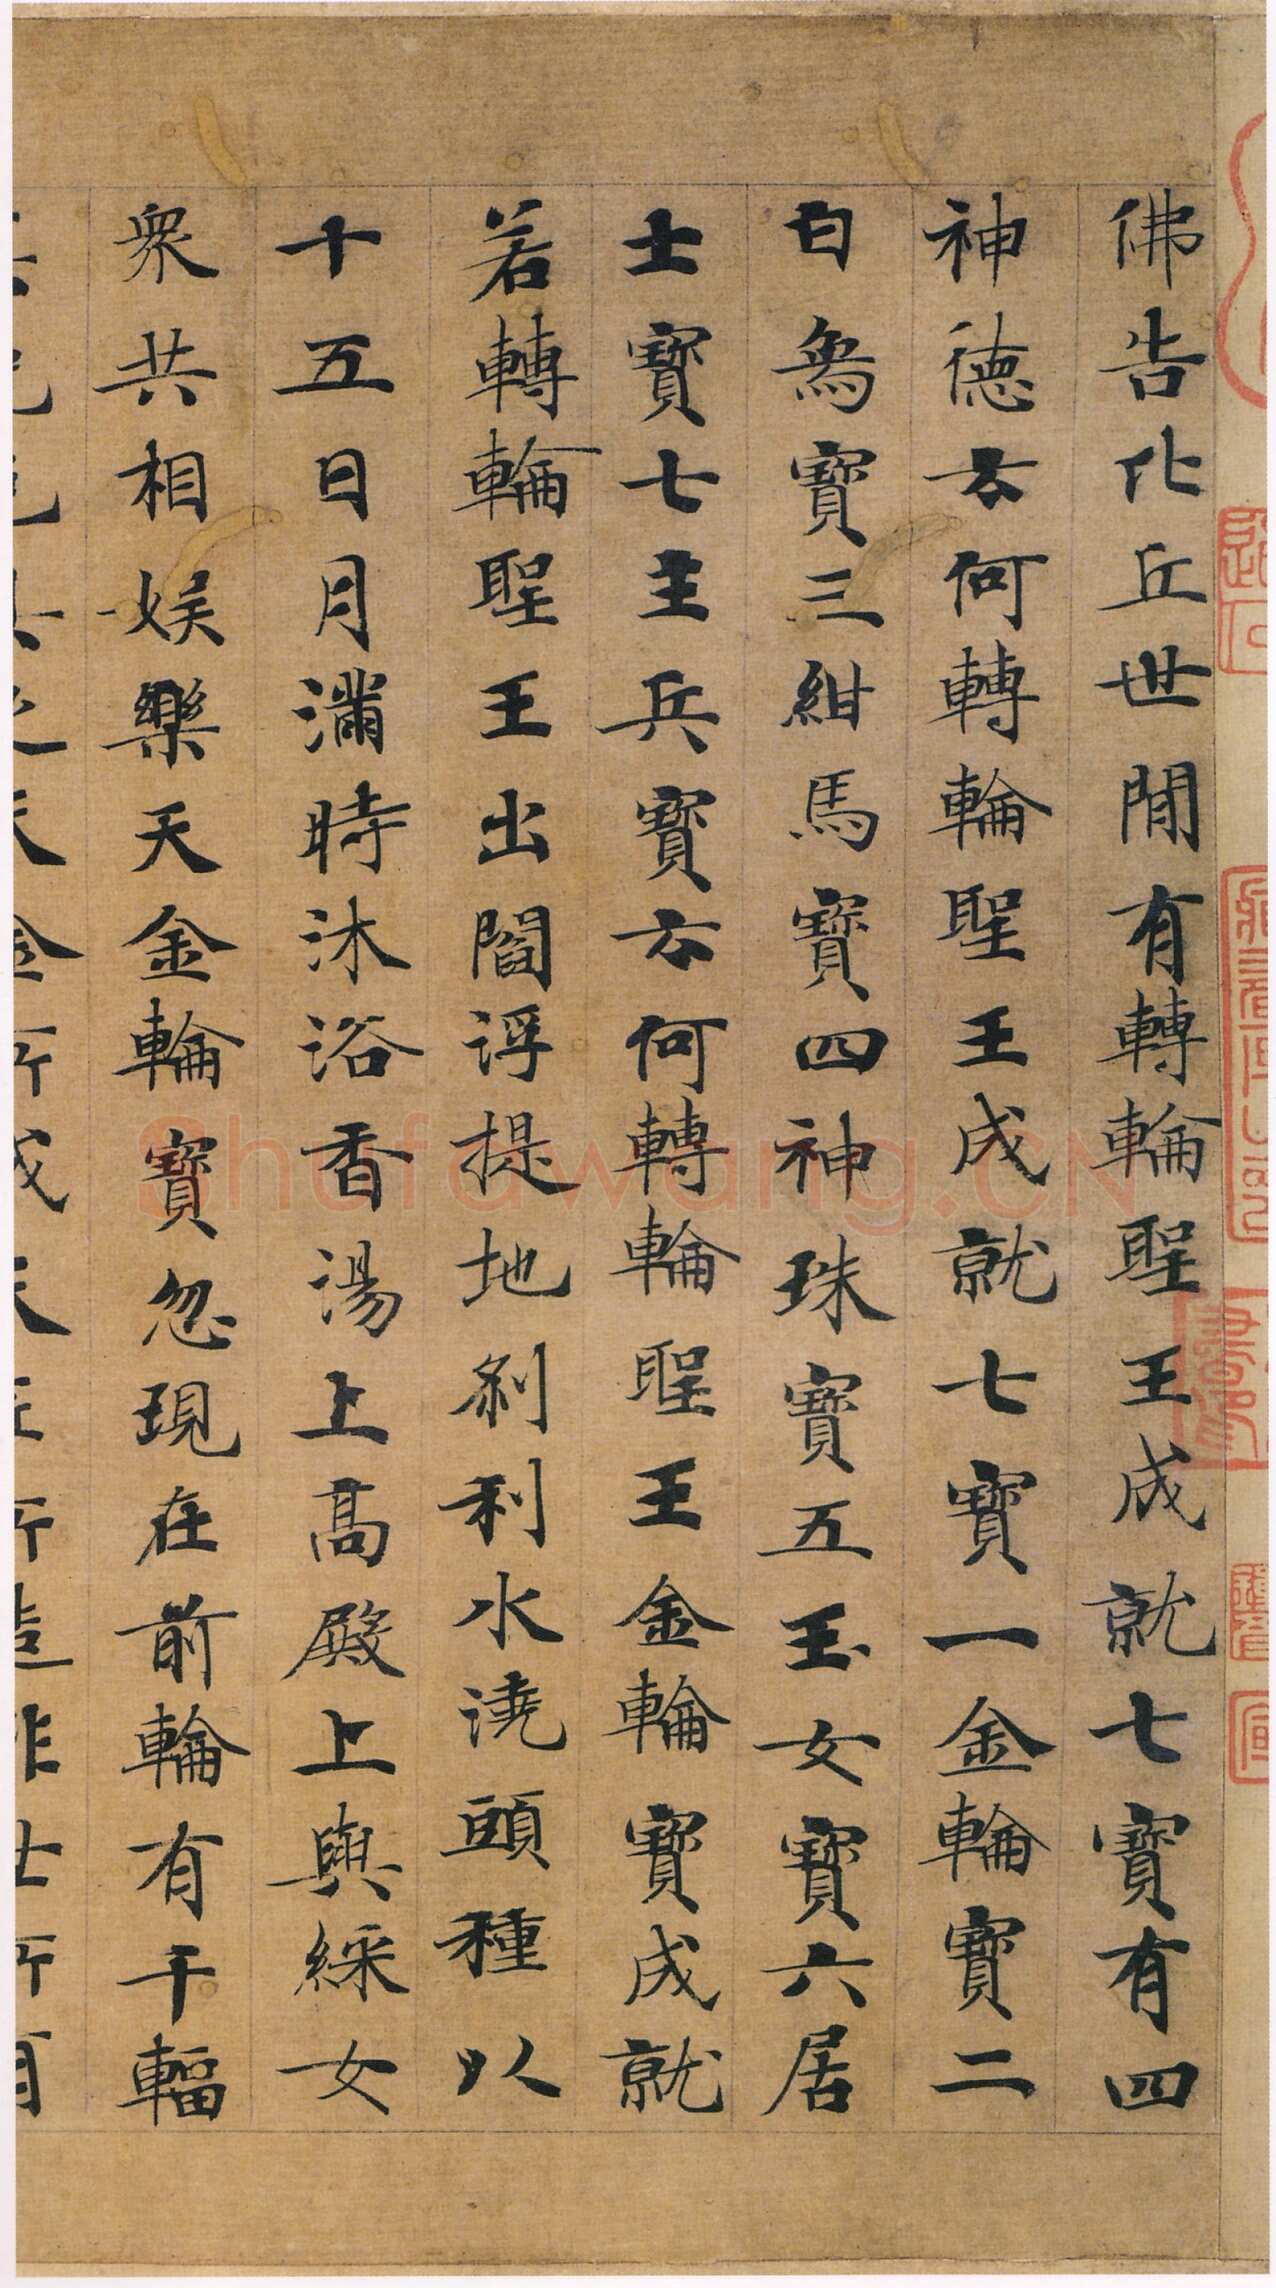 佛告比丘世間有轉輪聖王成就七寶有四
神德云何轉輪聖王成就七寶一金輪寶二
白象寶三紺馬寶四神珠寶五玉女寶六居
士寶七主兵寶云何轉輪聖王金輪寶成就
若轉輪聖王出閻浮提地剎利水澆頭種以
十五日月滿時沐浴香湯上高殿上與綵女
衆共相娛樂天金輪寶忽現在前輪有千輻
Shufawang.CN